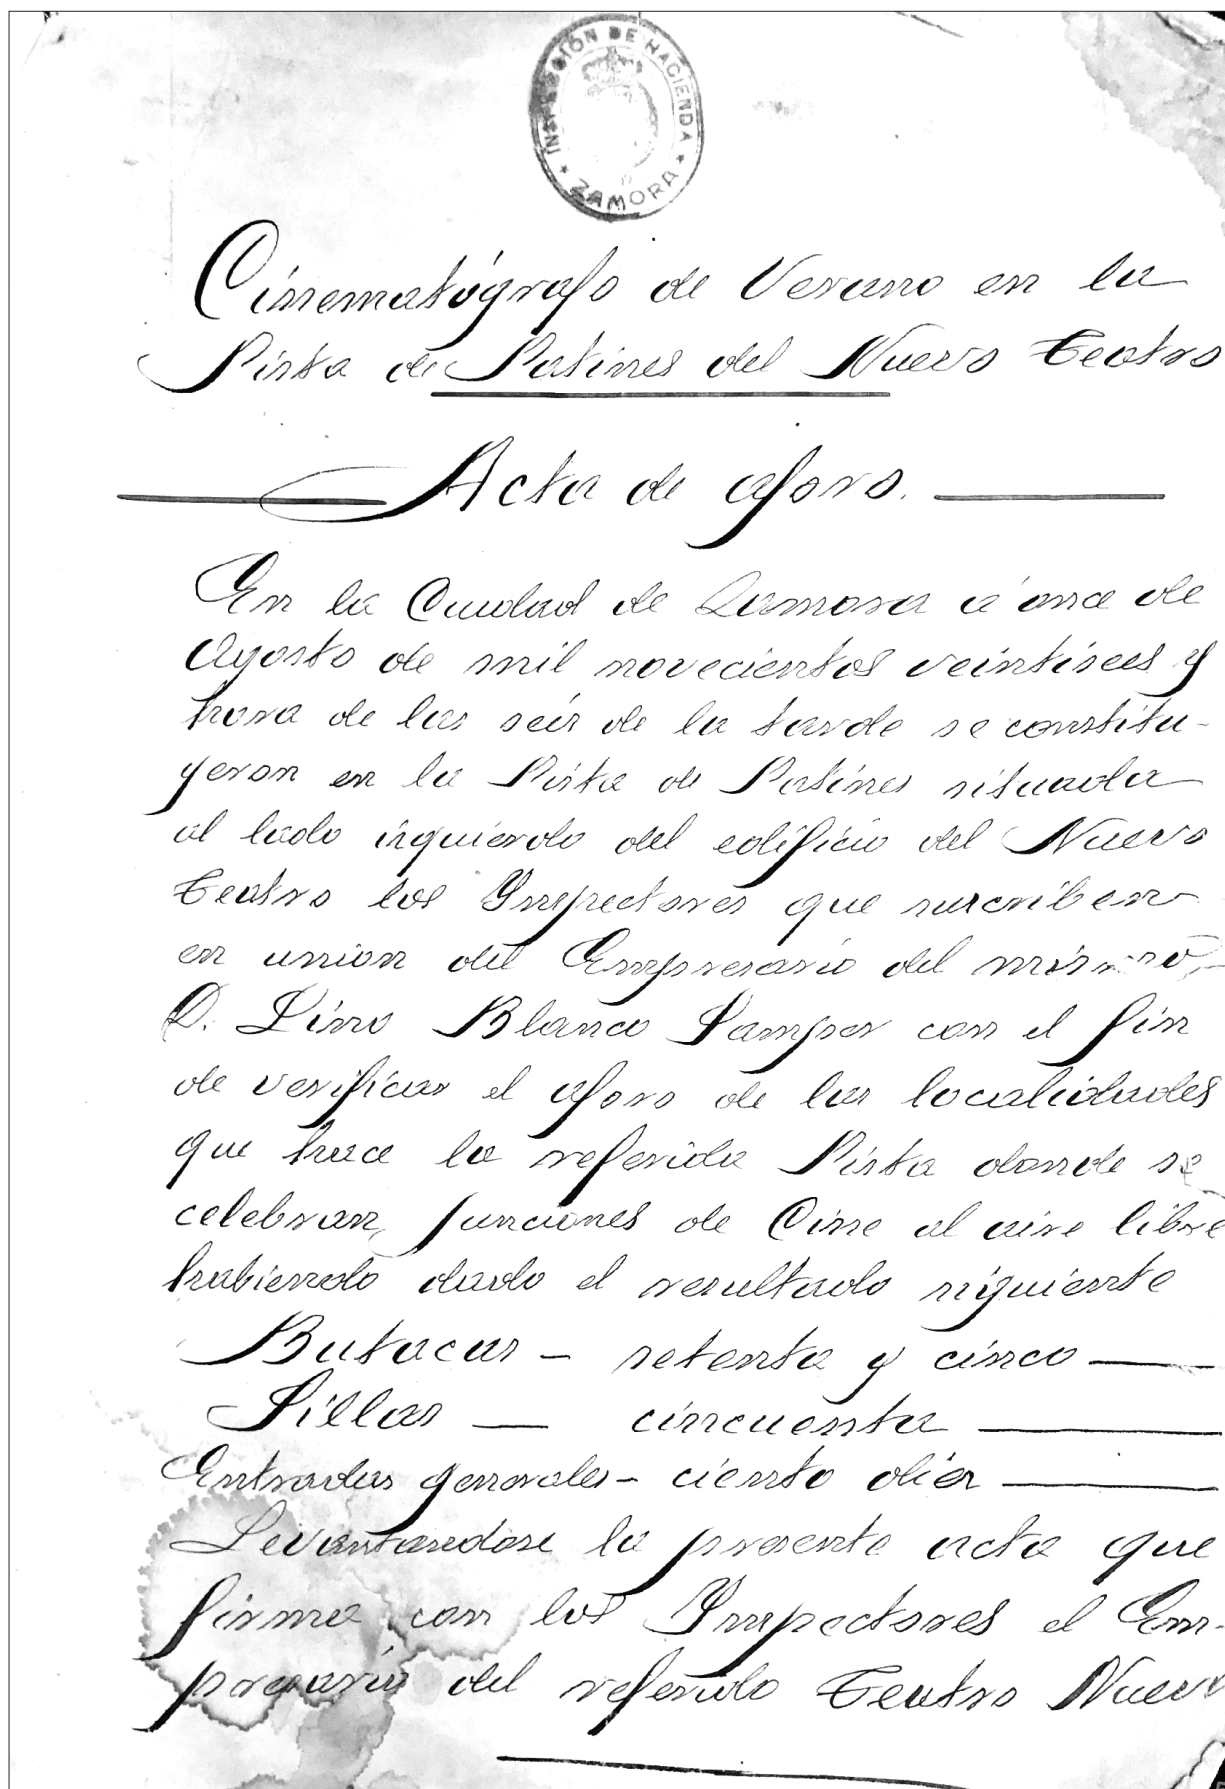 INSPECCIÓN DE HACIENDA
★ ZAMORA ★
Cinematógrafo de Verano en la
Pista de Patines del Nuevo Teatro
Acta de aforo.
En la Ciudad de Zamora á once de
Agosto de mil novecientos veintiseis y
hora de las seis de la tarde se constitu-
yeron en la Pista de Patines situada
al lado izquierdo del edificio del Nuevo
Teatro los Inspectores que suscriben
en union del Empresario del mismo,
D. Lino Blanco Samper con el fin
de verificar el aforo de las localidades
que hace la referida Pista donde se
celebran, funciones de Cine al aire libre
habiendo dado el resultado siguiente
Butacas – setenta y cinco
Sillas — cincuenta
Entradas generales – ciento diez
Levantandose la presente acta que
firma con los Inspectores el Em-
presario del referido Teatro Nuevo